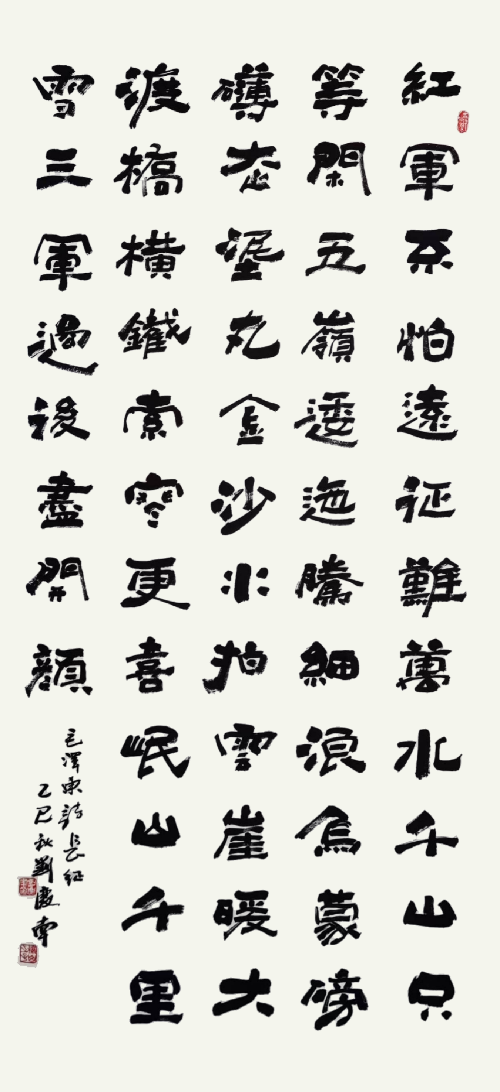 紅軍不怕遠征難萬水千山只
等閑五嶺逶迤騰細浪烏蒙磅
礴走埿丸金沙水拍雲崖暖大
渡橋橫鐵索寒更喜岷山千里
雪三軍過後盡開顏
毛澤東詩長征
乙巳秋劉